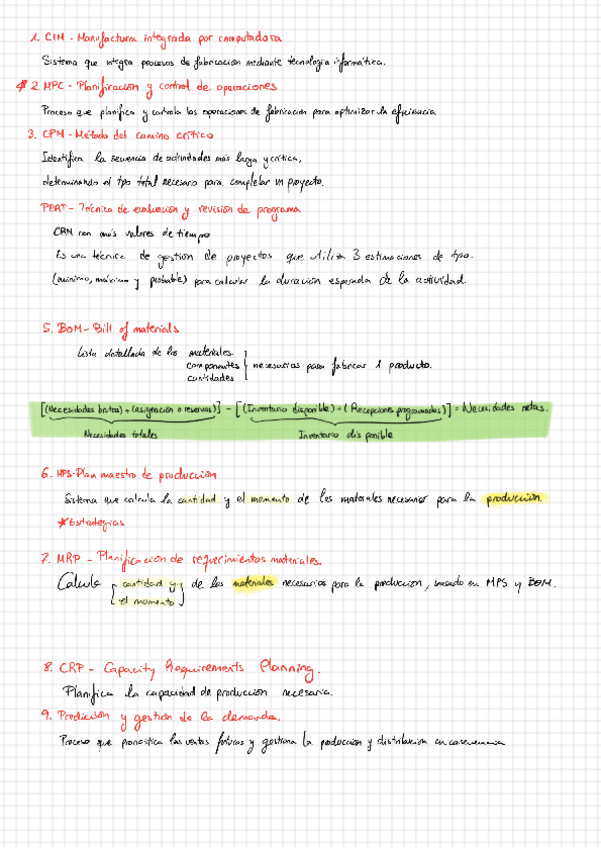 1. CIM - Manufactura integrada por computadora
Sistema que integra procesos de fabricación mediante tecnología informática.
2. MPC - Planificación y control de operaciones
Proceso que planifica y controla las operaciones de fabricación para optimizar la eficiencia
3. CPM - Método del camino crítico
Identifica la secuencia de actividades más larga y crítica,
determinando el tpo total necesario para completar un proyecto.
PERT - Técnica de evaluación y revisión de programa
CRM con más valores de tiempo
Es una técnica de gestión de proyectos que utiliza 3 estimaciones de tpo.
(mínimo, máximo y probable) para calcular la duración esperada de la actividad.
5. BOM - Bill of materials
Lista detallada de los materiales
componentes necesarios para fabricar 1 producto.
cantidades
[(Necesidades brutas) + (asignación o reservas)] - [(Inventario disponible) + (Recepciones programadas)] = Necesidades netas.
Necesidades totales Inventario disponible
6. MPS - Plan maestro de producción
Sistema que calcula la cantidad y el momento de los materiales necesarios para la producción
★ Estrategias
7. MRP - Planificación de requerimientos materiales.
Calcula cantidad y de los materiales necesarios para la producción, basado en MPS y BOM.
el momento
8. CRP - Capacity Requirements Planning.
Planifica la capacidad de producción necesaria.
9. Predicción y gestión de la demanda.
Proceso que pronostica las ventas futuras y gestiona la producción y distribución en consecuencia